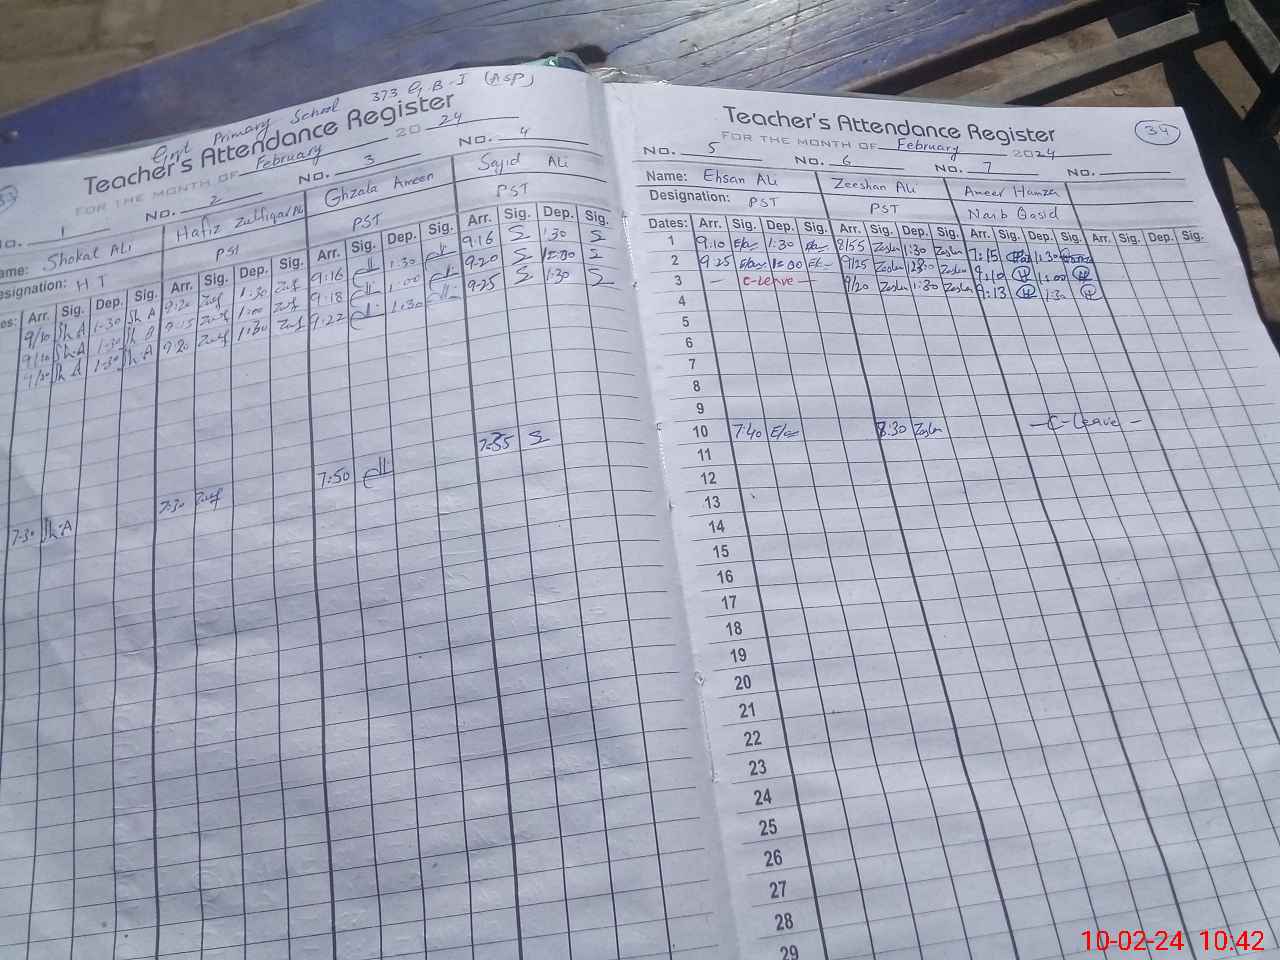 Govt Primary School 373 G.B-I (ASP)
Teacher's Attendance Register
FOR THE MONTH OF February 2024
NO. 1 NO. 2 NO. 3 NO. 4
Name: Shokat Ali Hafiz Zulfiqar Ali Ghzala Ameen Sajid Ali
Designation: H T PST PST PST
Dates: Arr. Sig. Dep. Sig. Arr. Sig. Dep. Sig. Arr. Sig. Dep. Sig. Arr. Sig. Dep. Sig.
9/10 Sh A 1-30 Sh A 9:20 Zulf 1:30 Zulf 9:16 1:30 9:16 S 1:30 S
9/10 Sh A 1-30 Sh A 9:15 Zulf 1:00 Zulf 9:18 1:00 9:20 S 12:00 S
9/20 Sh A 1-30 Sh A 9:20 Zulf 1:30 Zulf 9:22 1:30 9:25 S 1:30 S
7:30 Sh A 7:30 Zulf 7:50 7:35 S
39
Teacher's Attendance Register
FOR THE MONTH OF February 2024
NO. 5 NO. 6 NO. 7 NO.
Name: Ehsan Ali Zeeshan Ali Ameer Hamza
Designation: PST PST Naib Qasid
Dates: Arr. Sig. Dep. Sig. Arr. Sig. Dep. Sig. Arr. Sig. Dep. Sig. Arr. Sig. Dep. Sig.
1 9:10 1:30 8/55 1:30 7:15 1:30
2 9:25 12:00 9/25 9:10 1:00
3 — C-Leave — 9/20 1:30 9:13 1:30
4
5
6
7
8
9
10 7:40 8:30 — C-Leave —
11
12
13
14
15
16
17
18
19
20
21
22
23
24
25
26
27
28
29
10-02-24 10:42